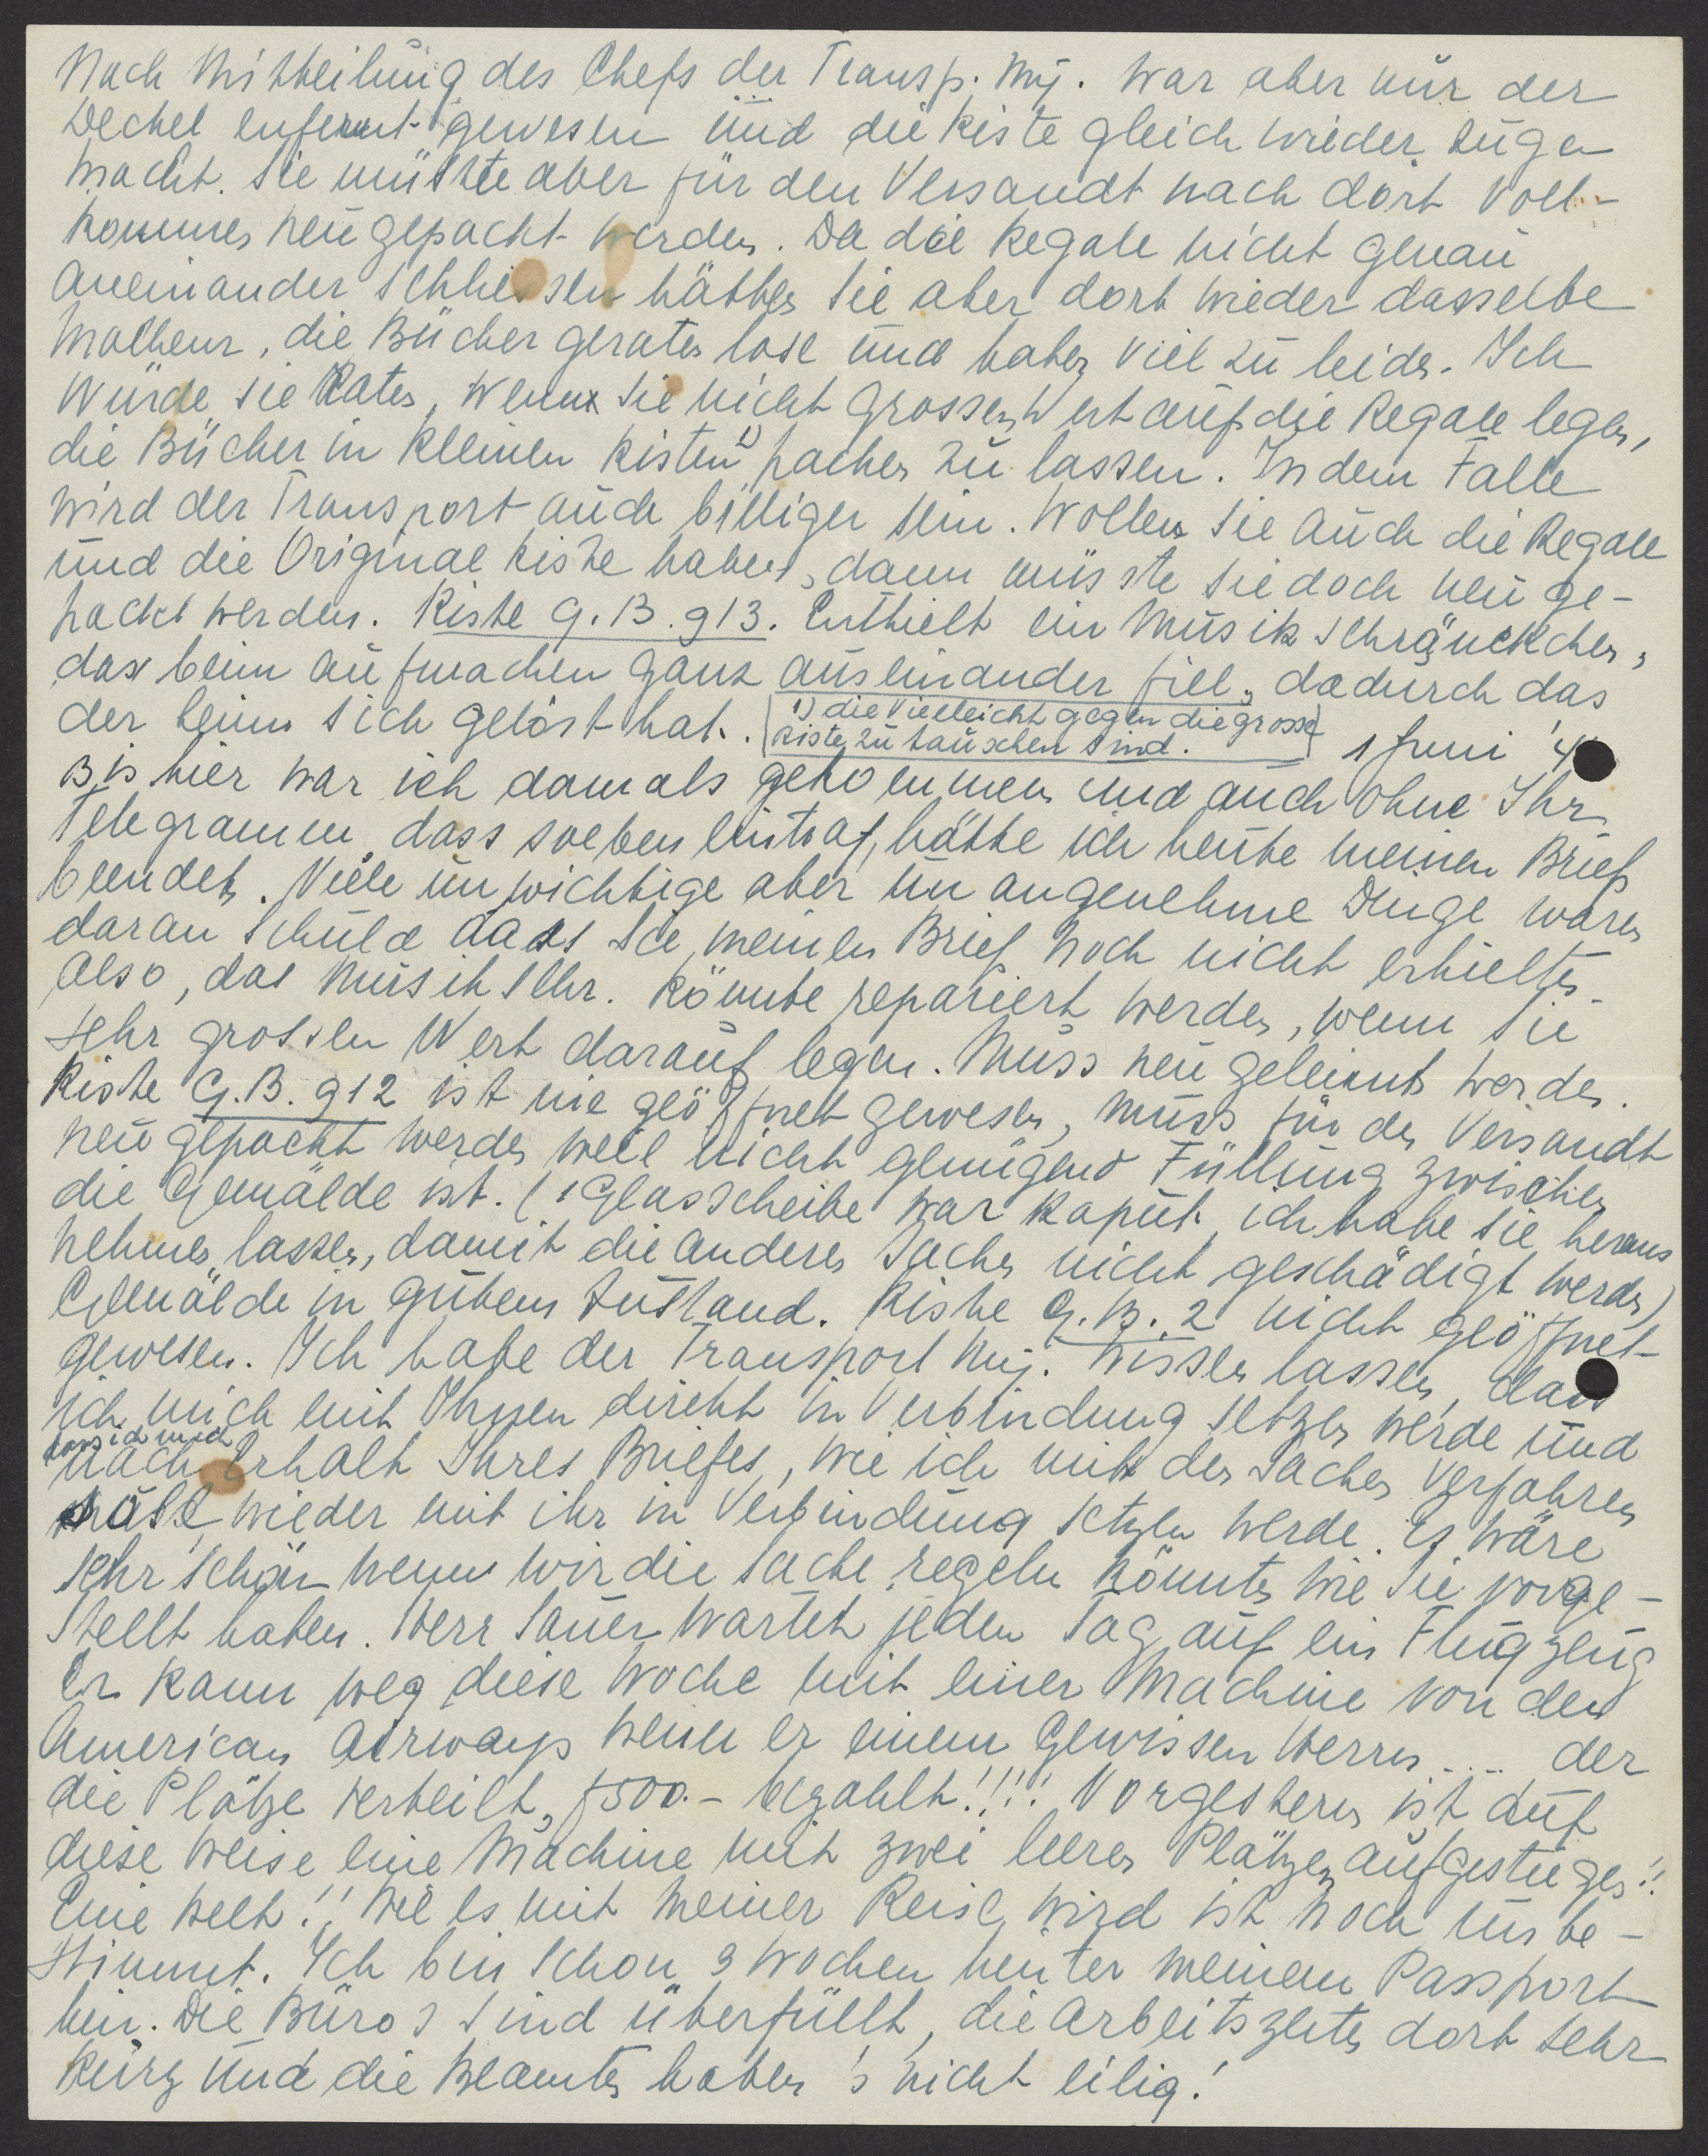 Nach Mitteilung des Chefs der Transp. Mij. war aber nur der
Deckel enfernt gewesen und die Kiste gleich wieder zuge
macht. Sie müsste aber für den Versandt nach dort voll-
kommen neu gepackt werden. Da die Regale nicht genau
aneinander schliessen hätten Sie aber dort wieder dasselbe
Malheur, die Bücher geraten lose und haben viel zu leiden. Ich
würde Sie Raten, wenn Sie nicht grossen Wert auf die Regale legen,
die Bücher in kleinen Kisten 1) packen zu lassen. In dem Falle
wird der Transport auch billiger sein. Wollen Sie auch die Regale
und die Original Kiste haben, dann müsste sie doch neu ge-
packt werden. Kiste G.B. 913. Enthielt ein Musikschränckchen,
das beim aufmachen ganz auseinander fiel, dadurch das
der Leim sich gelöst hat.
1) die vielleicht gegen die grosse
Kiste zu tauschen sind.
1 Juni '4
Bis hier war ich damals gekommen und auch ohne Ihr
Telegramm, dass soeben eintraf, hätte ich heute meinen Brief
beendet. Viele unwichtige aber unangenehme Dinge waren
daran Schuld dass Sie meinen Brief noch nicht erhielten.
Also, das Musikschr. könnte repariert werden, wenn Sie
sehr grossen Wert darauf legen. Muss neu geleimt werden.
Kiste G.B. 912 ist nie geöffnet gewesen, muss für den Versandt
neu gepackt werden weil nicht genügend Füllung zwischen
die Gemälde ist. (1 Glasscheibe war kaput, ich habe sie heraus
nehmen lassen, damit die anderen Sachen nicht geschädigt werden)
Gemälde in gutem Zustand. Kiste G.B. 2 nicht geöffnet
gewesen. Ich habe der Transport Mij. wissen lassen, dass
ich mich mit Ihnen direkt in Verbindung setzen werde und
dass ich mich
nach Erhalt Ihres Briefes, wie ich mit den Sachen verfahren
wieder mit ihr in Verbindung setzen werde. Es wäre
sehr schön wenn wir die Sache regeln könnten wie Sie vorge-
stellt haben. Herr Sauer wartet jeden Tag auf ein Flugzeug
Er kann weg diese Woche mit einer Machine von den
American Airways wenn er einem gewissen Herrn .... der
die Plätze verteilt, f500.- bezahlt!!!! Vorgestern ist auf
diese Weise eine Machine mit zwei leeren Plätzen aufgestiegen!!
Eine Welt!! Wie es mit meiner Reise wird ist noch unbe-
stimmt. Ich bin schon 3 Wochen hinter meinem Passport
hin. Die Büro's sind überfüllt, die Arbeitszeiten dort sehr
kurz und die Beamten haben's nicht eilig!